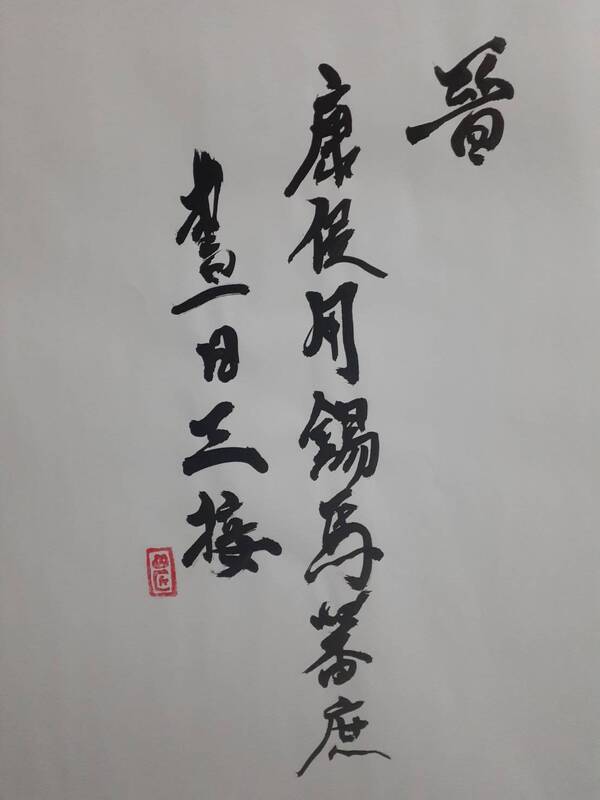 晉
康侯用錫馬蕃庶
晝日三接